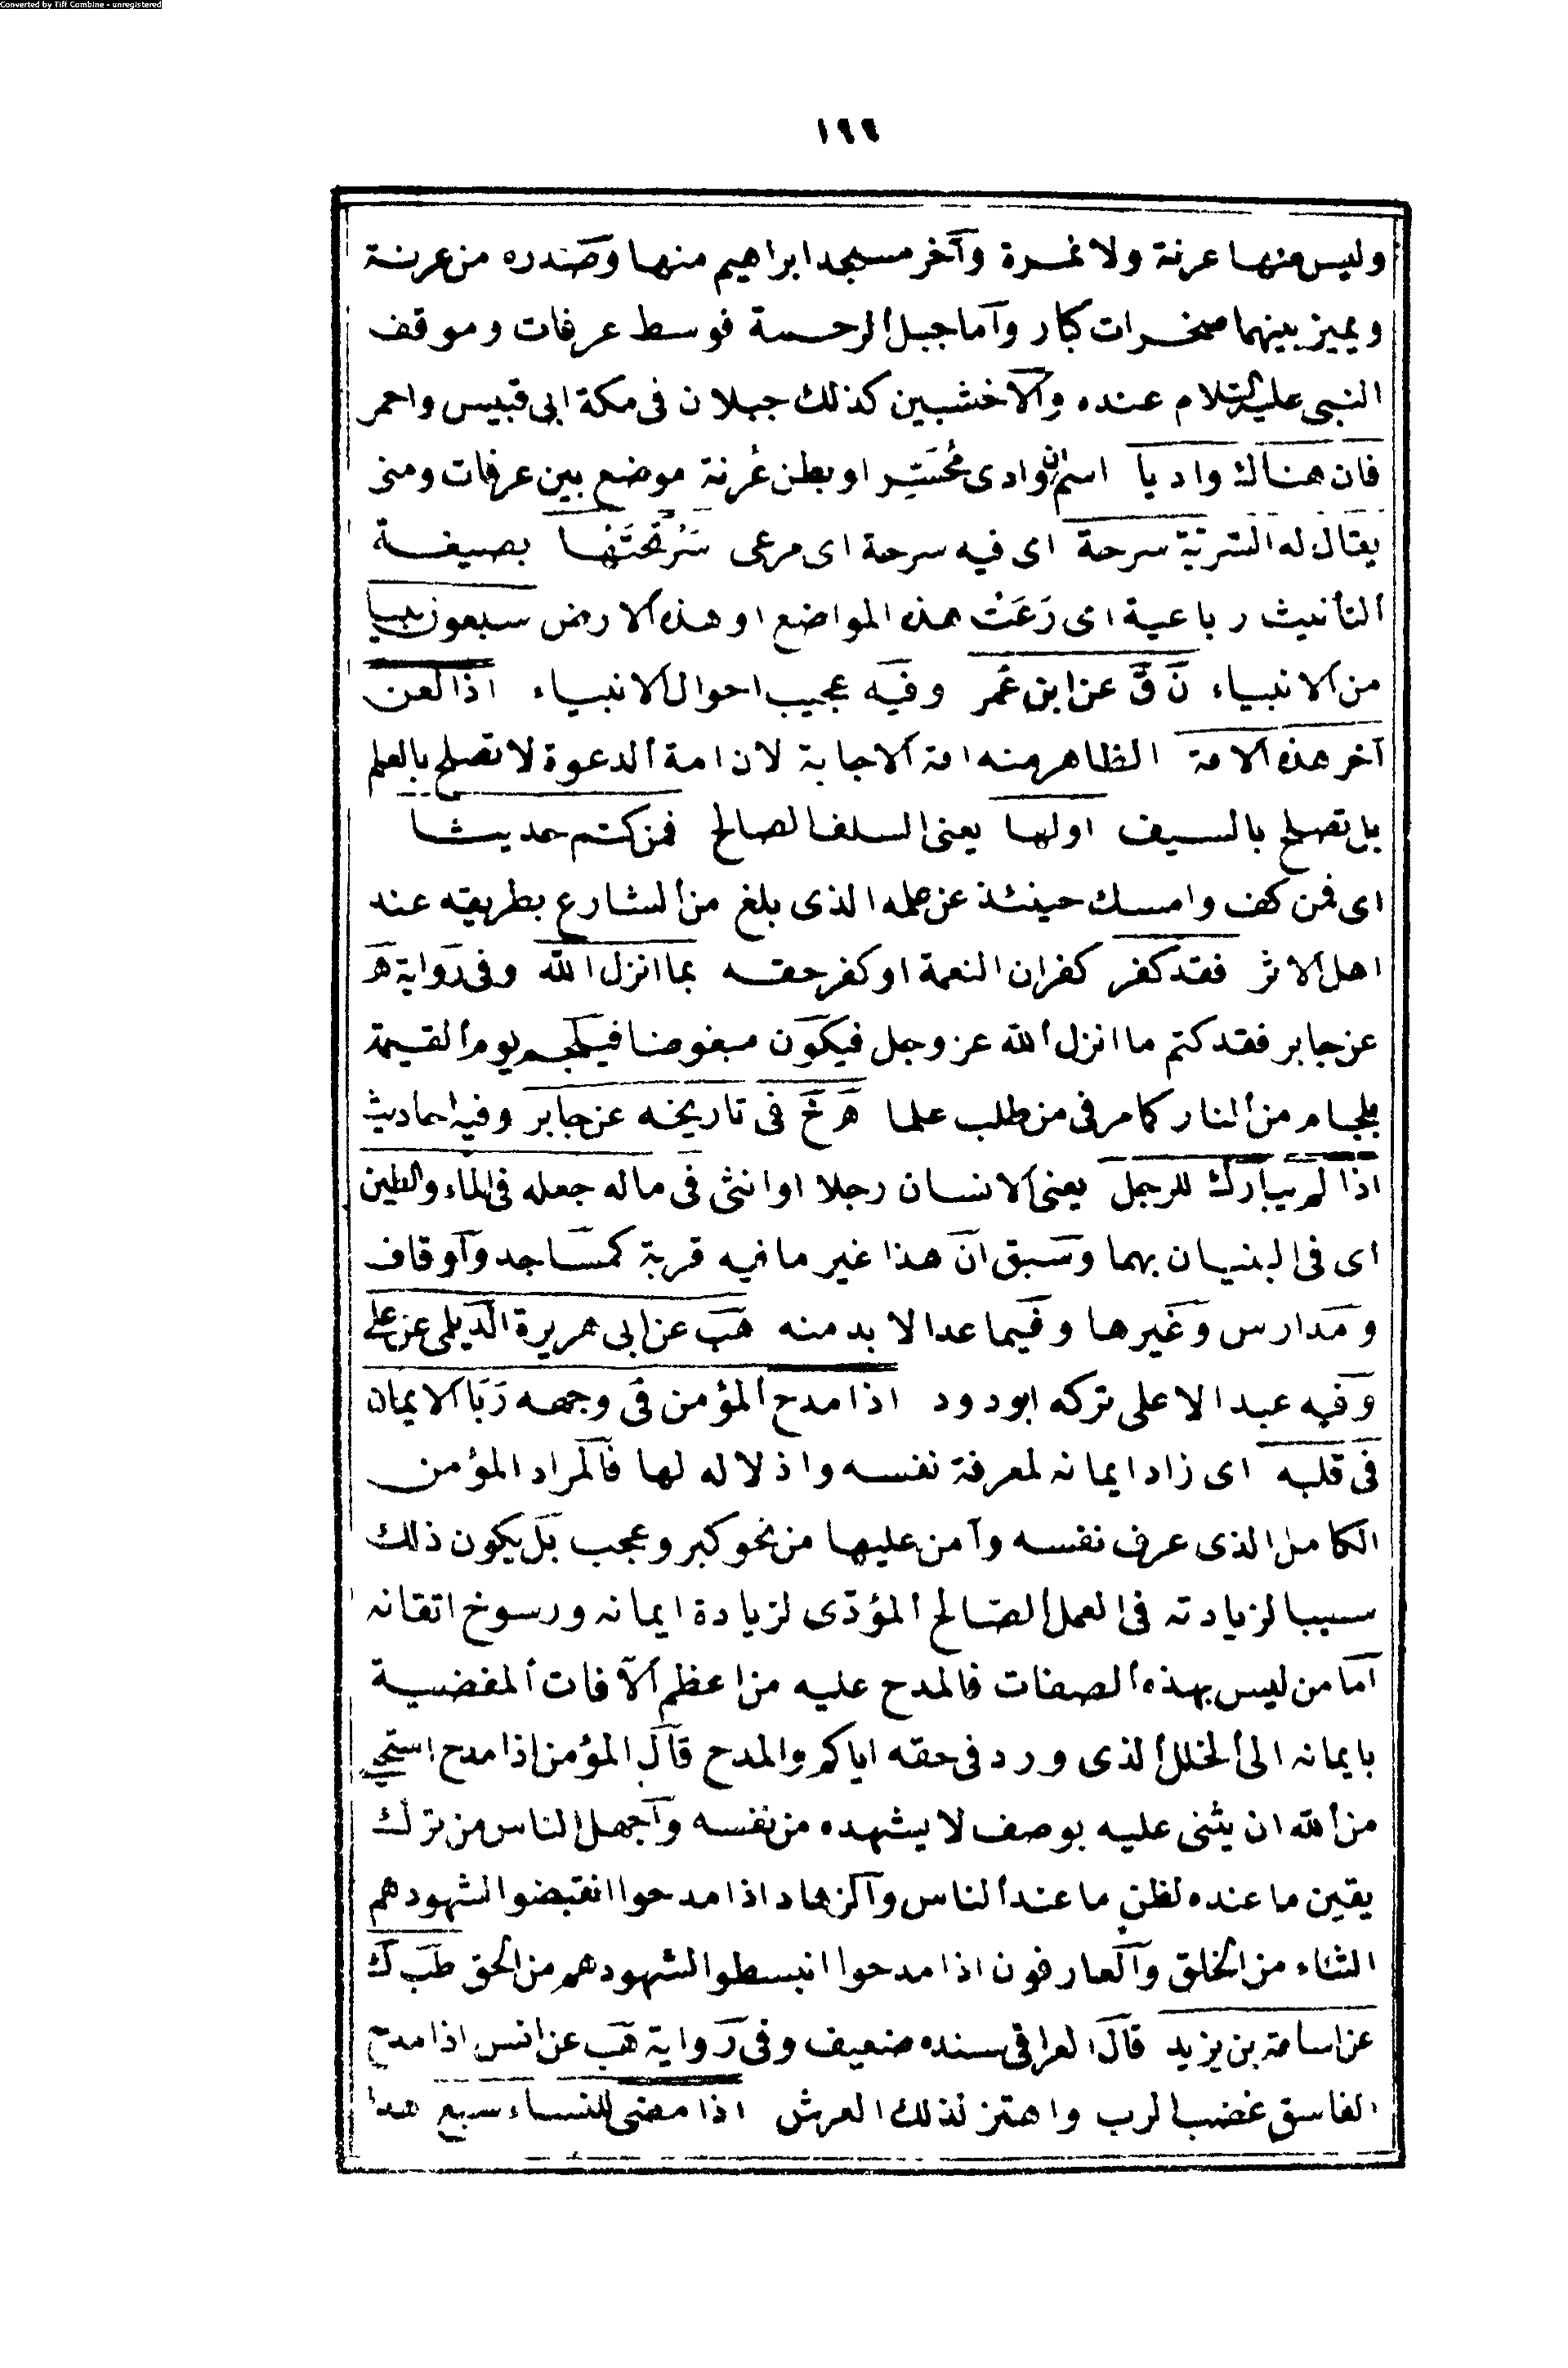 Converted by Tiff Combine - unregistered
١٩٩
وليس منها عرنة ولا نمرة وآخر مسجد ابراهيم منها وصدره من عرنة
ويميز بينهما صخرات كبار وأما جبل الرحمة فوسط عرفات وموقف
النبى عليه السلام عنده والاخشبين كذلك جبلان فى مكة ابى قبيس واحمر
فان هناك واديا اسم الوادى مُحَسِّر او بطن عُرنة موضع بين عرفات ومنى
يقال له السُّرَّبَة سرحة اى فيه سرحة اى مرعى سَرَحَتْها بصيغة
التأنيث رباعية اى رَعَتْ هذه المواضع او هذه الارض سبعون نبيا
من الانبياء نَ قَ عن ابن عُمر وفيه عجيب احوال الانبياء اذا لعن
آخر هذه الامة الظاهر منه امة الاجابة لان امة الدعوة لا تصلح بالعلم
بل تصلح بالسيف اولها يعنى السلف الصالح فمن كتم حديثا
اى فمن كف وامسك حينئذ عن علمه الذى بلغ من الشارع بطريقه عند
اهل الاثر فقد كفر كفران النعمة او كفر حقه بما انزل الله وفى رواية هَ
عن جابر فقد كتم ما انزل الله عز وجل فيكون مبغوضا فيلجم يوم القيمة
بلجام من النار كما مر فى من طلب علما هَ خَ فى تاريخه عن جابر وفيه احاديث
اذا لم يبارك للرجل يعنى الانسان رجلا او انثى فى ماله جعله فى الماء والطين
اى فى البنيان بهما وسبق ان هذا غير ما فيه قربة كمساجد وأوقاف
ومدارس وغيرها وفيما عدا لا بد منه هَب عن ابى هريرة الديلمى عن على
وفيه عبد الاعلى تركه ابو دود اذا مدح المؤمن فى وجهه رَبَا الايمان
فى قلبه اى زاد ايمانه لمعرفة نفسه واذلاله لها فالمراد المؤمن
الكامل الذى عرف نفسه وآمن عليها من نحو كبر وعجب بل يكون ذلك
سببا لزيادته فى العمل الصّالح المؤدّى لزيادة ايمانه ورسوخ اتقانه
أما من ليس بهذه الصفات فالمدح عليه من اعظم الآفات المفضية
بايمانه الى الخلل الذى ورد فى حقه اياكم والمدح قال المؤمن اذا مدح استحيى
من الله ان يثنى عليه بوصف لا يشهده من نفسه وأجهل الناس من ترك
يقين ما عنده لظن ما عند الناس والزهاد اذا مدحوا انقبضوا لشهودهم
الثناء من الخلق والعارفون اذا مدحوا انبسطوا لشهودهم من الحق طَب ك
عن اسامة بن يزيد قال العراقى سنده ضعيف وفى رواية هَب عن انس اذا مدح
الفاسق غضب الرب واهتز لذلك العرش اذا مضى للنساء سبع هذا